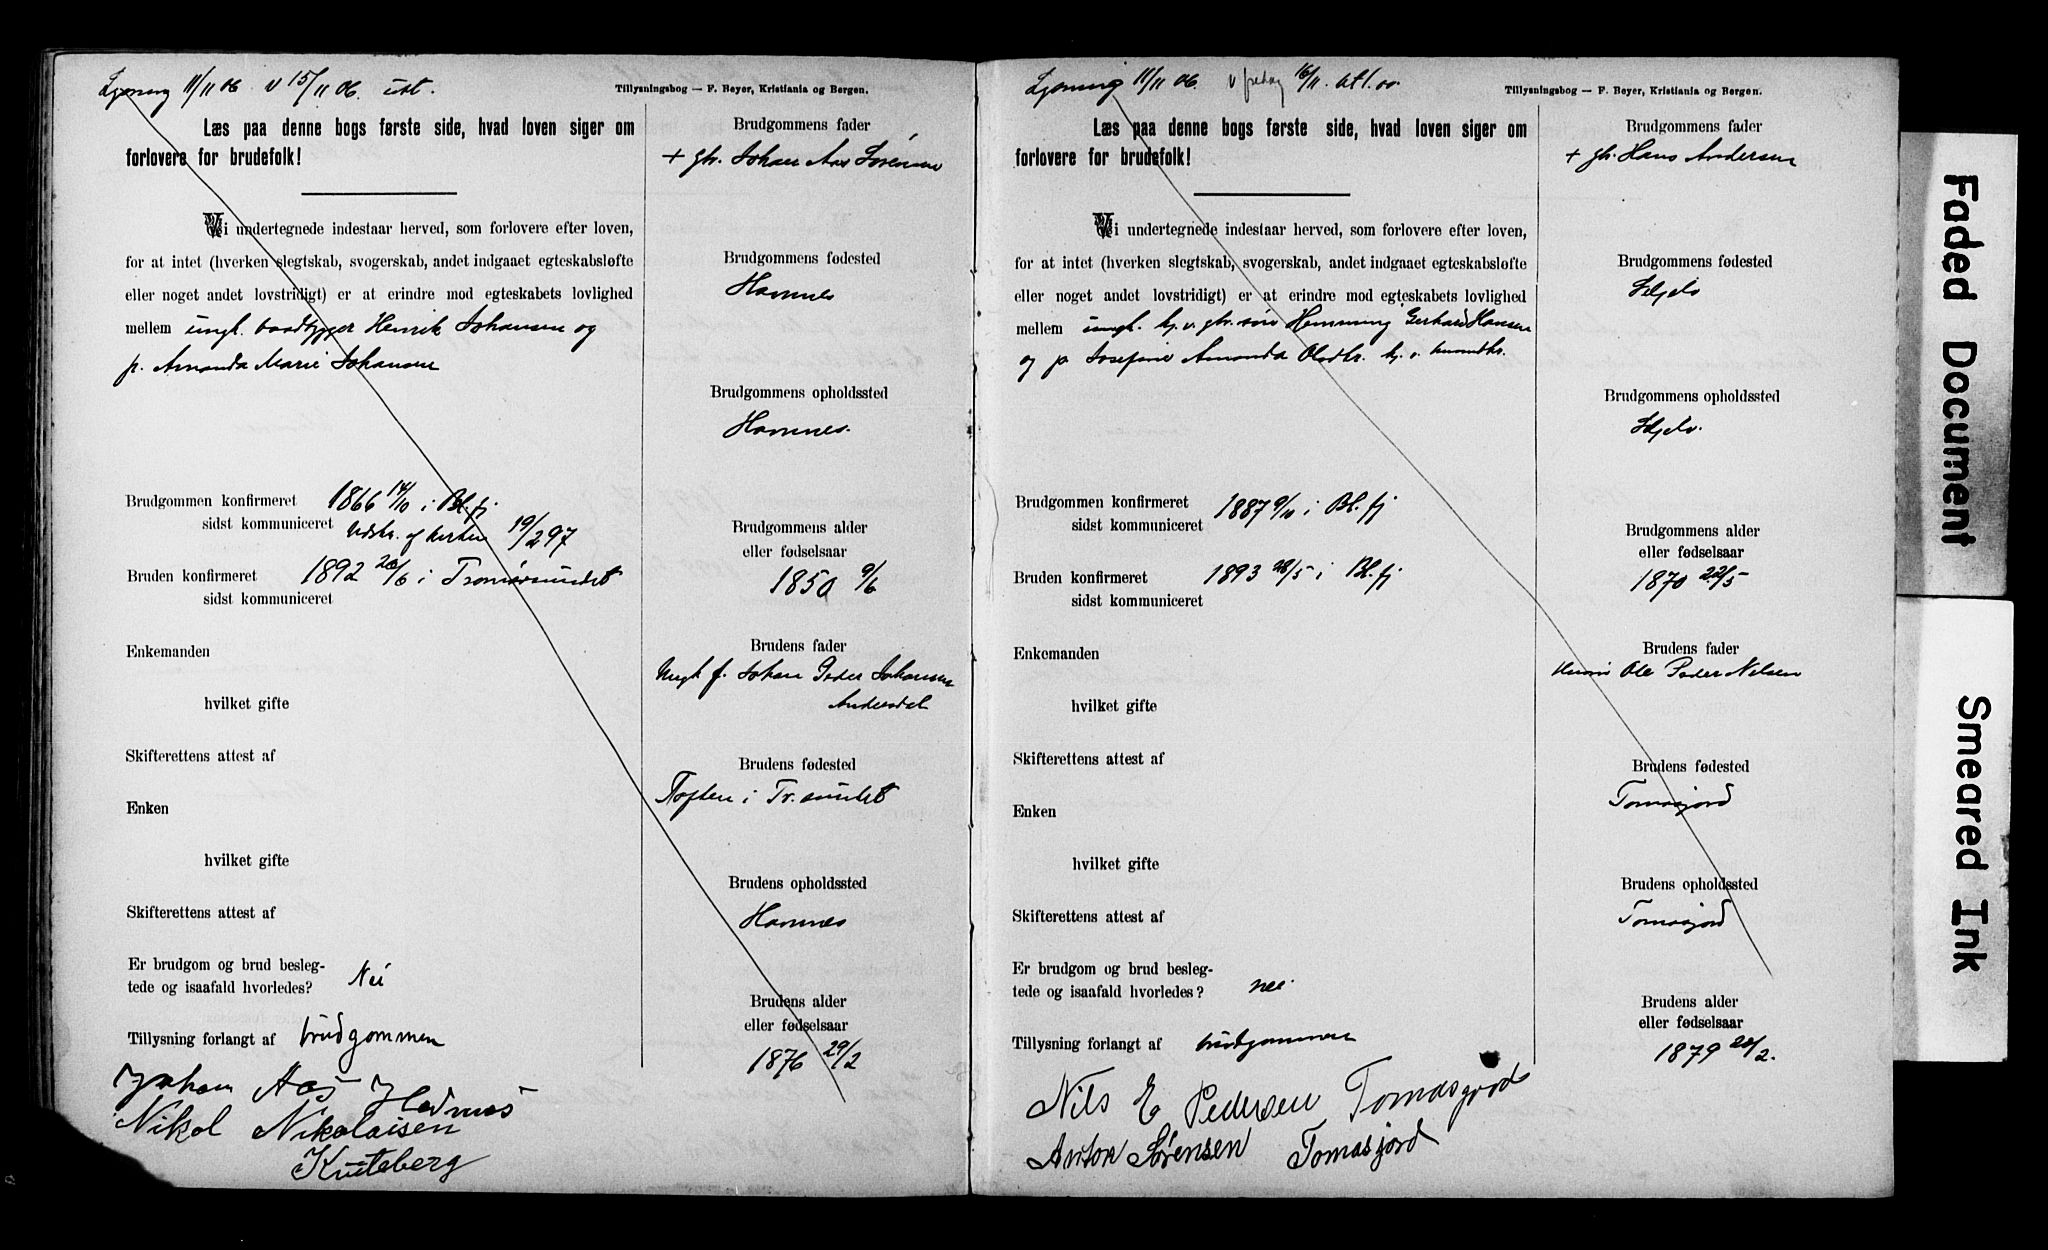 Lysning 11/11 06 v 15/11 06.
Tillysningsbog — F. Beyer, Kristiania og Bergen.
Læs paa denne bogs første side, hvad loven siger om
forlovere for brudefolk!
Vi undertegnede indestaar herved, som forlovere efter loven,
for at intet (hverken slegtskab, svogerskab, andet indgaaet egteskabsløfte
eller noget andet lovstridigt) er at erindre mod egteskabets lovlighed
mellem ungk. baadbygger Henrik Johansen og
p. Amanda Marie Johansen
Brudgommen konfirmeret 1866 14/10 i Bl.fj
sidst kommuniceret
Udstr. af kirken 19/2 97
Bruden konfirmeret 1892 26/6 i Tromsøsundet
sidst kommuniceret
Enkemanden
hvilket gifte
Skifterettens attest af
Enken
hvilket gifte
Skifterettens attest af
Er brudgom og brud besleg-
tede og isaafald hvorledes? Nei
Tillysning forlangt af brudgommen
Johan Aas Havnnes
Nikol Nikolaisen
Kviteberg
Brudgommens fader
+ gbr. Johan Aas Sørensen
Brudgommens fødested
Havnnes
Brudgommens opholdssted
Havnnes.
Brudgommens alder
eller fødselsaar
1850 9/6
Brudens fader
Ungk. f. Johan Peder Johansen
Andersdal
Brudens fødested
Toften i Tr.sundet
Brudens opholdssted
Havnnes
Brudens alder
eller fødselsaar
1876 29/2
Lysning 11/11 06. v fredag 16/11.
Tillysningsbog — F. Beyer, Kristiania og Bergen.
Læs paa denne bogs første side, hvad loven siger om
forlovere for brudefolk!
Vi undertegnede indestaar herved, som forlovere efter loven,
for at intet (hverken slegtskab, svogerskab, andet indgaaet egteskabsløfte
eller noget andet lovstridigt) er at erindre mod egteskabets lovlighed
mellem ungk. hj.v. gbr. søn Hemming Gerhard Hansen
og p Josefine Amanda Olsdtr. hj. v.
Brudgommen konfirmeret 1887 9/10 i Bl.fj
sidst kommuniceret
Bruden konfirmeret 1893 28/5 i Bl.fj
sidst kommuniceret
Enkemanden
hvilket gifte
Skifterettens attest af
Enken
hvilket gifte
Skifterettens attest af
Er brudgom og brud besleg-
tede og isaafald hvorledes? nei.
Tillysning forlangt af brudgommen
Nils E Pedersen Tomasgord
Anton Sørensen Tomasjord
Brudgommens fader
+ gbr. Hans Andersen
Brudgommens fødested
Seljelv
Brudgommens opholdssted
Seljelv.
Brudgommens alder
eller fødselsaar
1870 22/5
Brudens fader
Ole Peder Nilsen
Brudens fødested
Tomasjord
Brudens opholdssted
Tomasjord
Brudens alder
eller fødselsaar
1879 20/2.
Faded Document
Smeared Ink